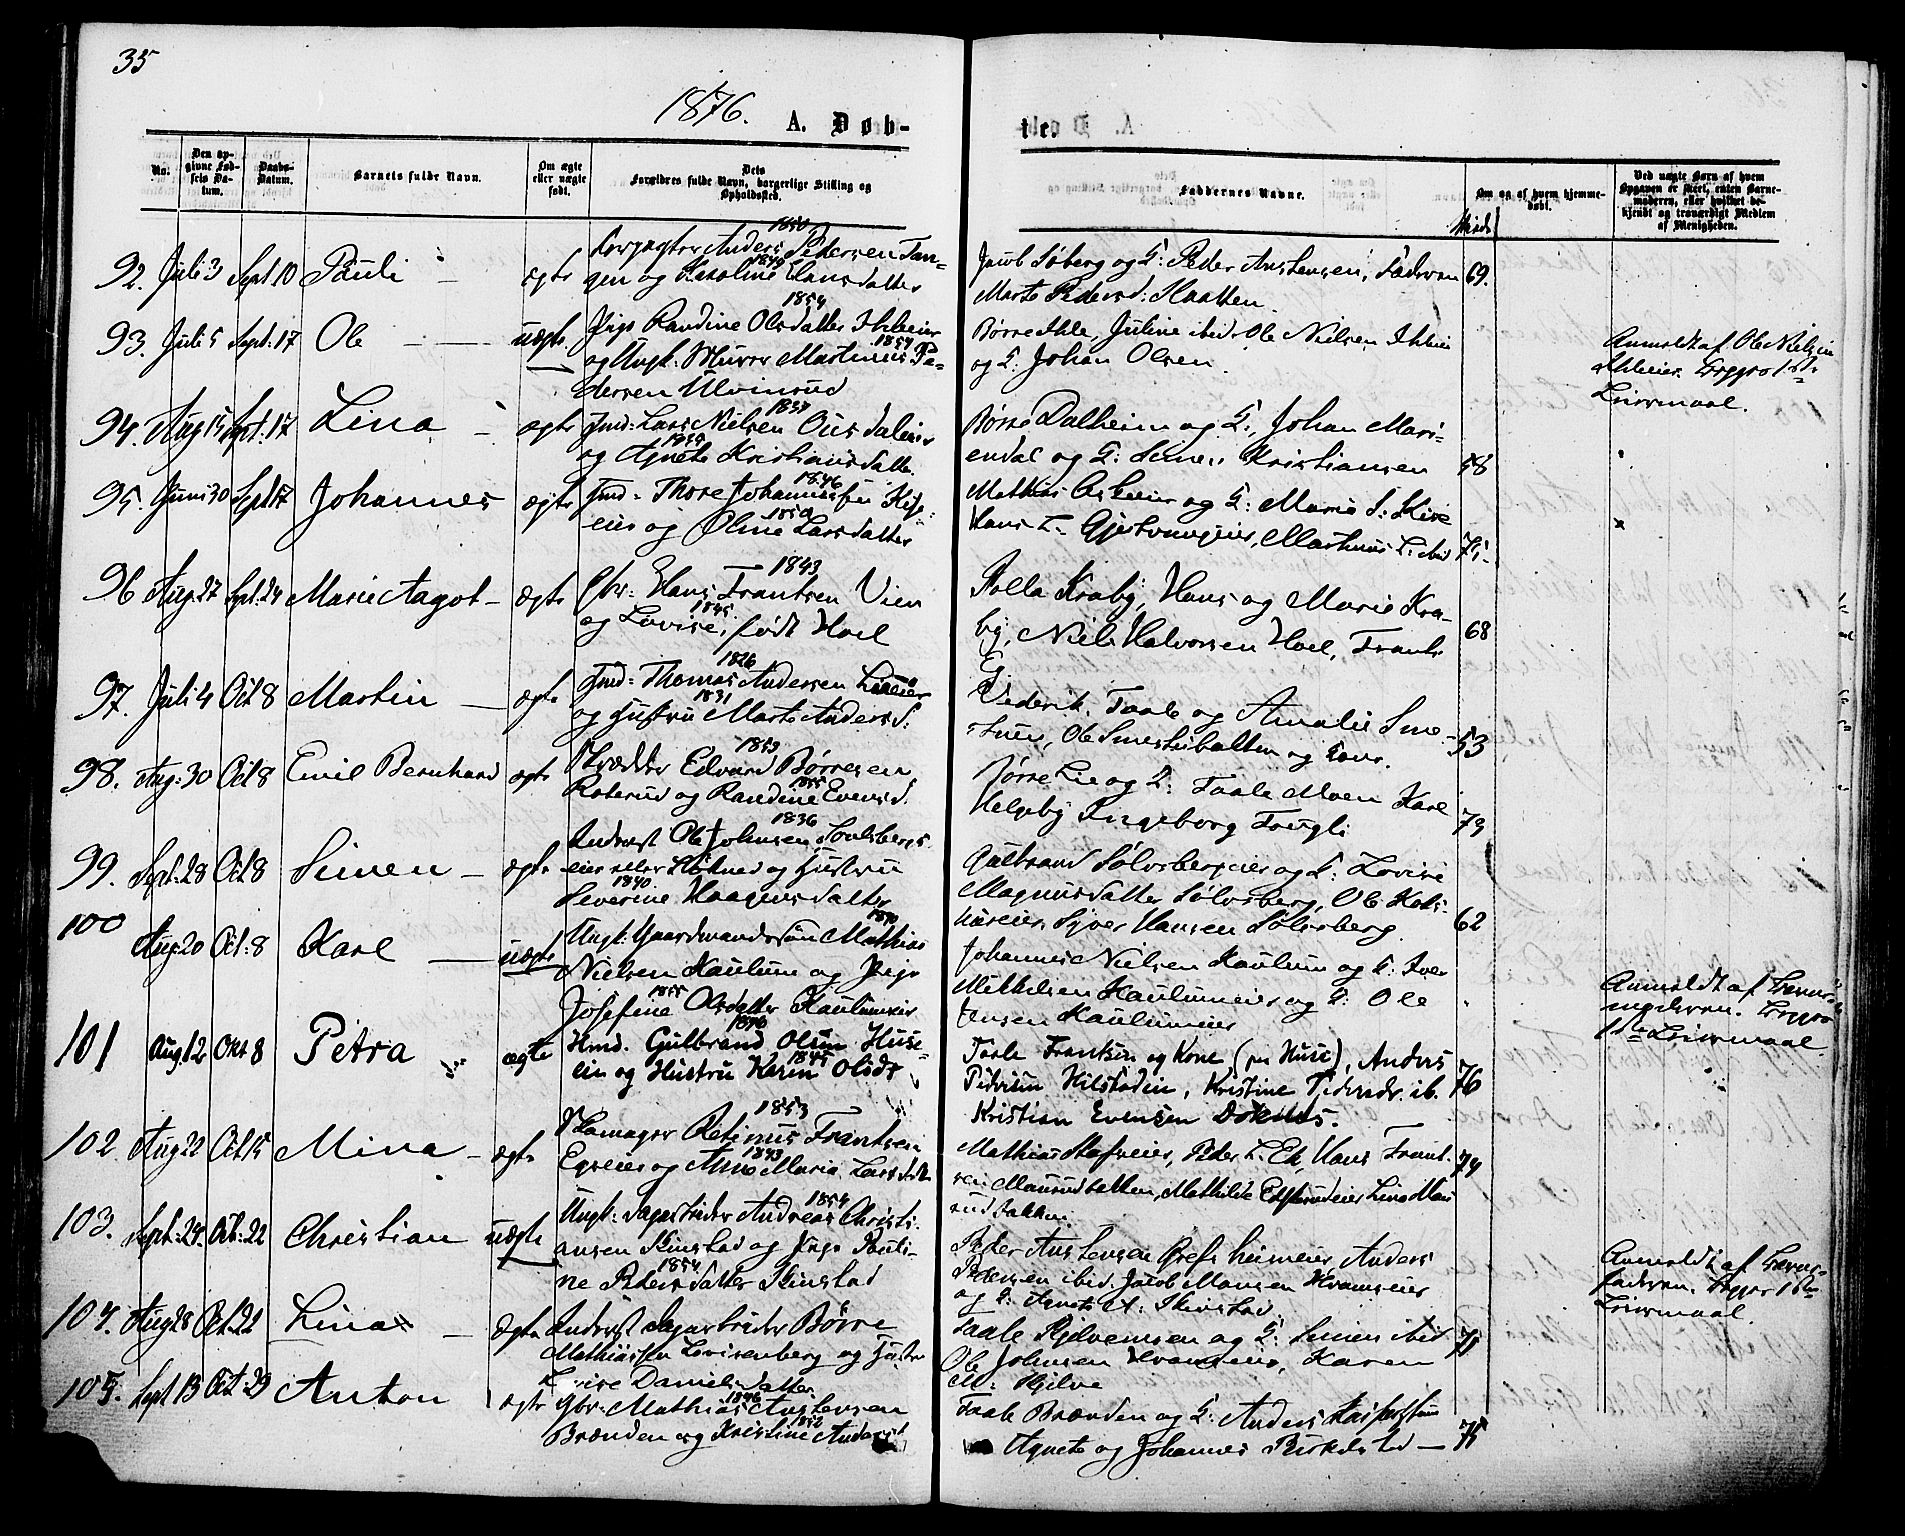 35
1876.
A. Døb-
te.
No.
Den op-
givne Fød-
sels Da-
tum.
Daabs-
Datum.
Barnets fulde Navn.
Om ægte
eller uægte
født.
Dets
Forældres fulde Navn, borgerlige Stilling og
Opholdssted.
Faddernes Navne.
Om og af hvem hjemme-
døbt.
Ved uægte Børn af hvem
Opgaven er skeet, enten Barne-
moderen, eller hvilket be-
kjendt og troværdigt Medlem
af Menigheden.
92. Juli 3 Sept. 10 Pauli - ægte
1850
Anders Pedersen Tan-
1849
gen og Karoline Larsdatter
Jacob Søberg og G: Peder Anstensen,
Marte Pedersd: Haatten
69.
93. Juli 5 Sept: 17 Ole - uægte
1854
Pige Randine Olsdatter Ihleeier
1854
og Ungk: Murer Martinius Pe-
dersen Ulvinsrud
Børre Ihle, Juline ibid. Ole Nielsen Ihleeier
og G: Johan Olsen.
Anmeldt af Ole Nielsen
Ihleeier. Begges 1ste
Leiermaal.
94. Aug 15 Sept: 17 Lina - ægte
1837
Jnd: Lars Nielsen Ousdaleier
1835
og Agnete Kristiansdatter
Børre Dalheim og G:, Johan Mari-
endal og G: Simen Kristiansen
58
95. Juni 30 Sept 17 Johannes ægte
1846
Jnd: Thore Johannessen Kise-
1850
eier og Oline Larsdatter
Mathias Askeier og G: Marie S: Kise
Hans L. Gjestvangeier, Martinus L. ibid
75.
96 Aug. 27 Sept: 24 Marie Aagot - ægte
1843
Gbr: Hans Frantsen Vien
1845
og Lovise, født Hoel
Palla Kraby, Hans og Marie Kra-
by, Niels Halvorsen Hoel, Frants
Ey
68
97. Juli 4 Oct 8 Martin - ægte
1826
Jnd: Thomas Andersen Lieeier
1831
og Hustru Marte Andersd.
Diderik Faale og Amalie Sme-
stuen, Ole Smestubakken og Kone.
53
98. Aug: 30 Oct 8 Emil Bernhard ægte
1853
Skrædder Edvard Børresen
1855
Roterud og Randine Evensd.
Børre Lie og G: Faale Moen Karl
Helgeby Ingeborg Fougli
73
99. Sept: 28 Oct 8 Simen - ægte
1836
Inderst Ole Johnsen Soulsbergs-
eier eller Røknes og Hustru
1840
Severine Haagensdatter
Gulbrand Sølvsbergeier og G: Lovise
Magnusdatter Sølvsberg, Ole Kals-
huseier, Syver Hansen Sølvsberg.
62
100 Aug: 20 Oct: 8 Karl - uægte
1850
Ungk: Gaardmandssøn Mathias
Nielsen Kaulum og Pige
1855
Josefine Olsdatter Kaulumeier
Johannes Nielsen Kaulum og G: Iver
Mikkelsen Kaulumeier og G: Ole
Jensen Kaulumeier
Anmeldt af Barne-
Begges
1ste Leiermaal.
101 Aug: 12 Okt 8 Petra ægte
Hmd. Gulbrand Olsen Huse-
1845
eien og Hustru Karen Olsdt
Faale Frantsen og Kone (paa Huse), Anders
Pedersen Hilstadeien, Kristine Pedersdr. ib.
Kristian Evensen Doknes.
76
102. Aug 22 Oct 15 Mina - ægte
1853
Skomager Petinus Frantsen
1843
Egseier og Anne Marie Larsdtr
Mathias Hafveier, Peder L. Ek, Hans Frant-
sen Maurudbakken, Mathilde Lina Mau-
rudbakken.
74
103. Sept: 24. Oct: 22 Christian uægte
1854
Ungk: Dagarbeider Andreas Christi-
ansen Skinstad og Pige Pauli-
1854
ne Pedersdatter Skinstad
Peder Anstensen Grefsheimeier, Anders
Pedersen ibid. Jacob Mansen Hvamseier
og G: Agnete A: Skinstad.
Anmeldt af Barne-
faderen. Begges 1ste
Leiermaal.
104. Aug 28 Oct. 22 Lina - ægte
Inderst Dagarbeider Børre
Mathiassen Lovisenberg og Hustru
Lovise Danielsdatter
Faale Hjelvemsen og G: Simen ibid
Ole Johnsen Hvamseier, Karen
M: Hjelve
71
105. Sept 13 Oct: 29 Anton ægte
1846
Gbr: Mathias Anstensen
1852
Brænden og Kristine Andersd
Faale Brænden og G: Anders Kaspersstuen
Agnete og Johannes Birkelstad -
75